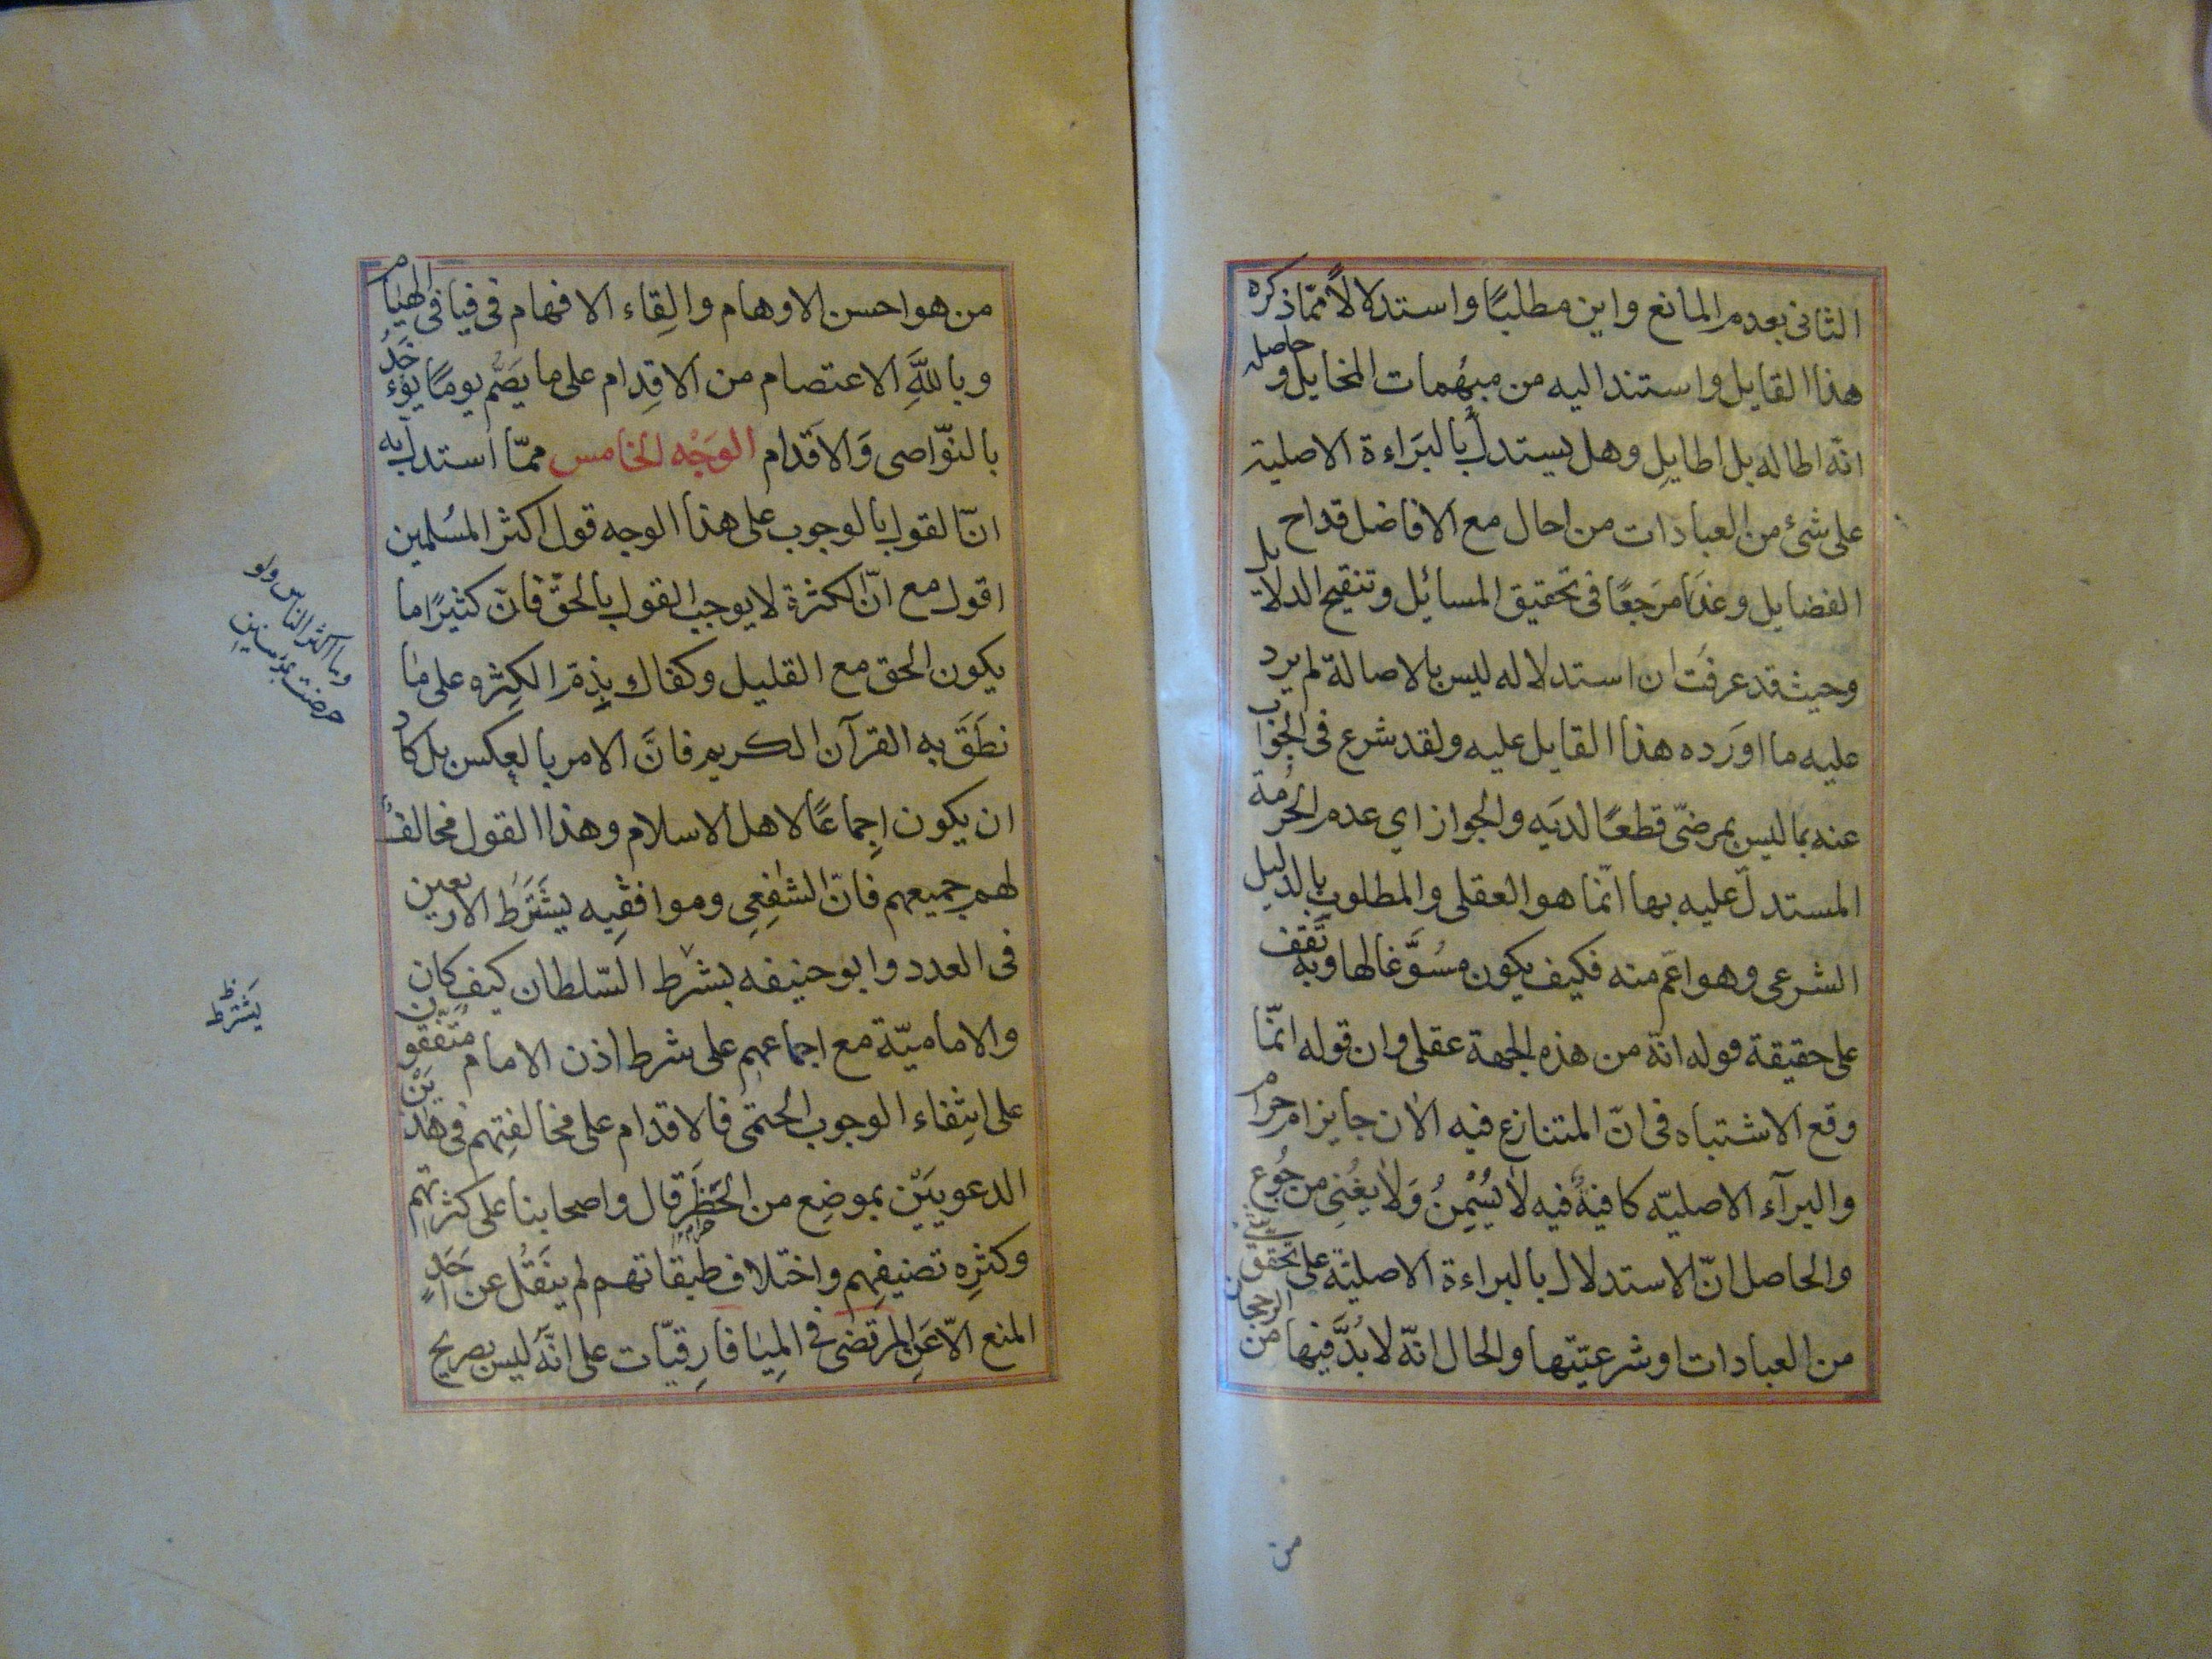 الثانى بعدم المانع واين مطلبًا واستدلالًا ممّا ذكره
هذا القايل واستند اليه من مبهمات المخايل وحاصله
انّه اطاله بلا طايل وهل يستدلّ بالبَراءة الاصلية
على شئ من العبادات من احال مع الافاضل قداح
الفضايل وغدَا مرَجعًا فى تحقيق المسائل وتنقيح الدلايل
وحيث قد عرفت ان استدلاله ليس بالاصالة لم يرد
عليه ما اورَده هذا القايل عليه ولقد شرع فى الجواب
عنه بما ليس بمرضىّ قطعًا لديَه والجواز اي عدم الحرُمة
المستدلّ عليه بها انّما هو العقلى والمطلوب بالدليل
الشرعى وهو اعَم منه فكيف يكون مسُوَّغا لها وبه تَقف
على حقيقة قوله انّه من هذه الجهة عقلى وان قوله انّما
وقع الاشتباه فى انّ المتنازع فيه الان جايز ام حرام
والبرآء الاصليّه كافيةٌ فيه لا يُسْمِنُ وَلا يغُنِى من جُوع
والحاصل انّ الاستدلال بالبراءة الاصليّة على تحقق الرجحان
من العبادات او شرعيّتها والحال انّه لا بُدَّ فيها من
من
من هواحسن الاوهام والِقاء الافهام فى فيافى الهيام
وباللهَِ الاعتصام من الاقِدام على ما يصَمُ يومًا يؤخَذُ
بالنوّاصى وَالاَقدام الوَجْه الخامس ممّا استدل به
انّ القول بالوجوب على هذا الوجه قول اكثر المسُلمين
اقول مع انّ الكثرة لا يوجب القول بالحقّ فانّ كثيرًا ما
يكون الحق مع القليل وكفاك بذِم الكِثره على ما
نطَقَ به القرآن الكريم فانَّ الامر بالعِكس بل كاد
ان يكون اِجماعًا لاهل الاسلام وهذا القول مخالفُ
لهم جميعهم فانّ الشفِعِى وموافقيِه يشَتَرط الاربعين
فى العدد وابو حنيفه بشرط السّلطان كيف كان
والاماميّة مع اجماعهم على شرط اذن الامام متّفقون
على انِتفاء الوجوب الحتمَى فالاقدام على مخالفتِهم فى هذَيَنْ
الدعوييَنْ بموضِع من الحَظَر قال واصحابنا على كثرتهم
وكثرِه تصنيفِهم واختلاف طبقاتهم لم ينَقُل عن احَدٍ
المنع الّا عَنِ المرتضى فى المِيا فارِقيّات على انَّه ليس بصريح
وما اكثر الناس ولو
حرصت بمؤمنين
يَشترط